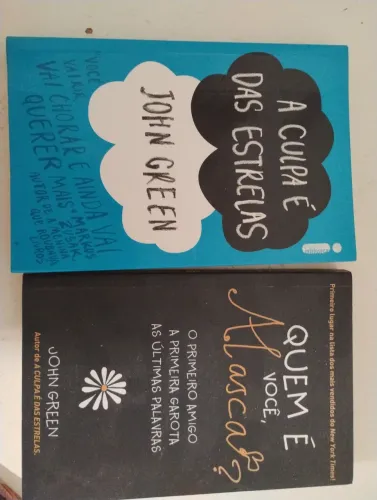 A CULPA É
DAS ESTRELAS
JOHN GREEN
"VOCÊ
VAI RIR,
VAI CHORAR E AINDA VAI
QUERER MAIS."
MARKUS
ZUSAK,
AUTOR DE A MENINA
QUE ROUBAVA
LIVROS
Primeiro lugar na lista dos mais vendidos do New York Times!
QUEM É
VOCÊ,
Alasca?
O PRIMEIRO AMIGO
A PRIMEIRA GAROTA
AS ÚLTIMAS PALAVRAS
JOHN GREEN
Autor de A CULPA É DAS ESTRELAS.